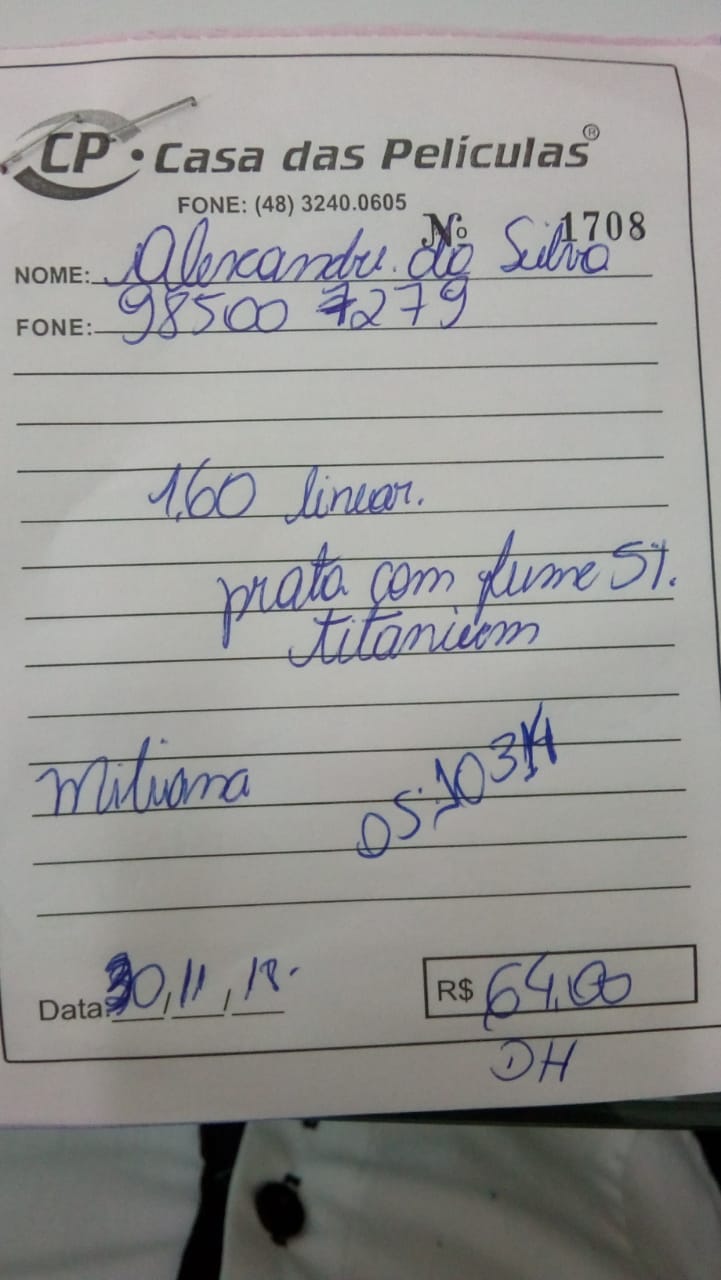 CP • Casa das Películas®
FONE: (48) 3240.0605
Nº 1708
NOME: Alexandre da Silva
FONE: 98500 7279
1,60 linear.
prata com fume 5%.
titanium
Data: 30/11/18.
R$ 64,00
DH